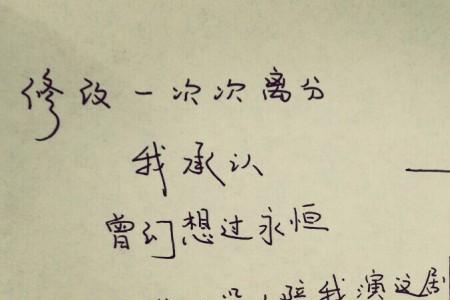 修改一次次离分
我承认
曾幻想过永恒
陪我演这剧